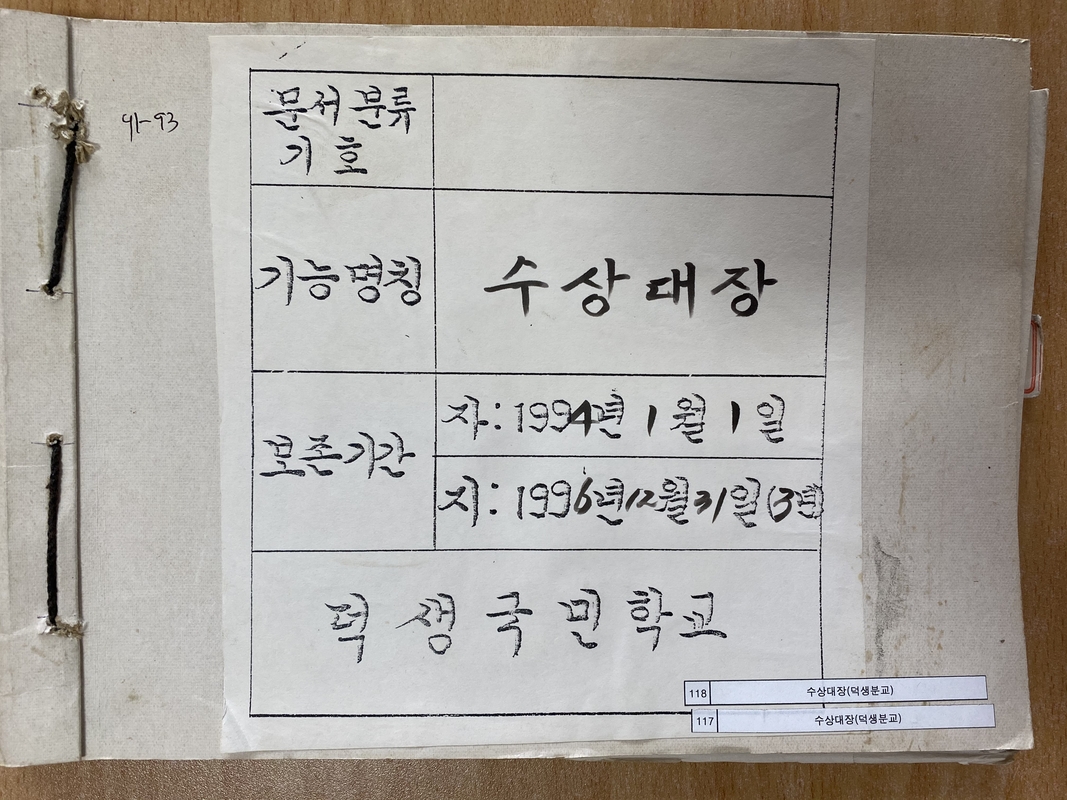 91-93
문서 분류
기 호
기능명칭
수상대장
보존기간
자: 1994년 1월 1일
지: 1996년 12월 31일 (3년)
덕생국민학교
118 수상대장(덕생분교)
117 수상대장(덕생분교)